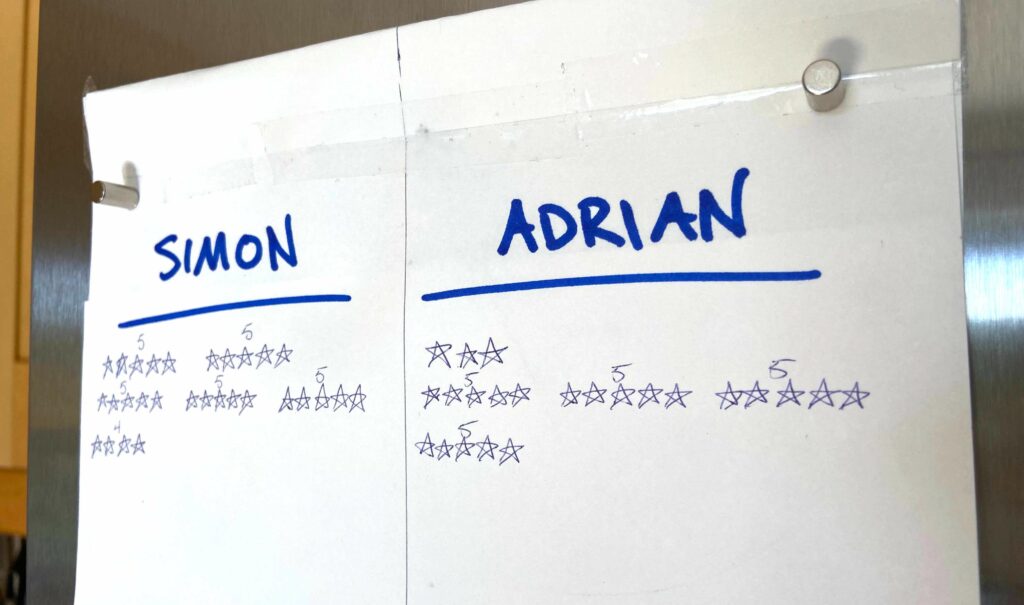 SIMON
ADRIAN
5 5
5 5 5
4
5 5 5
5